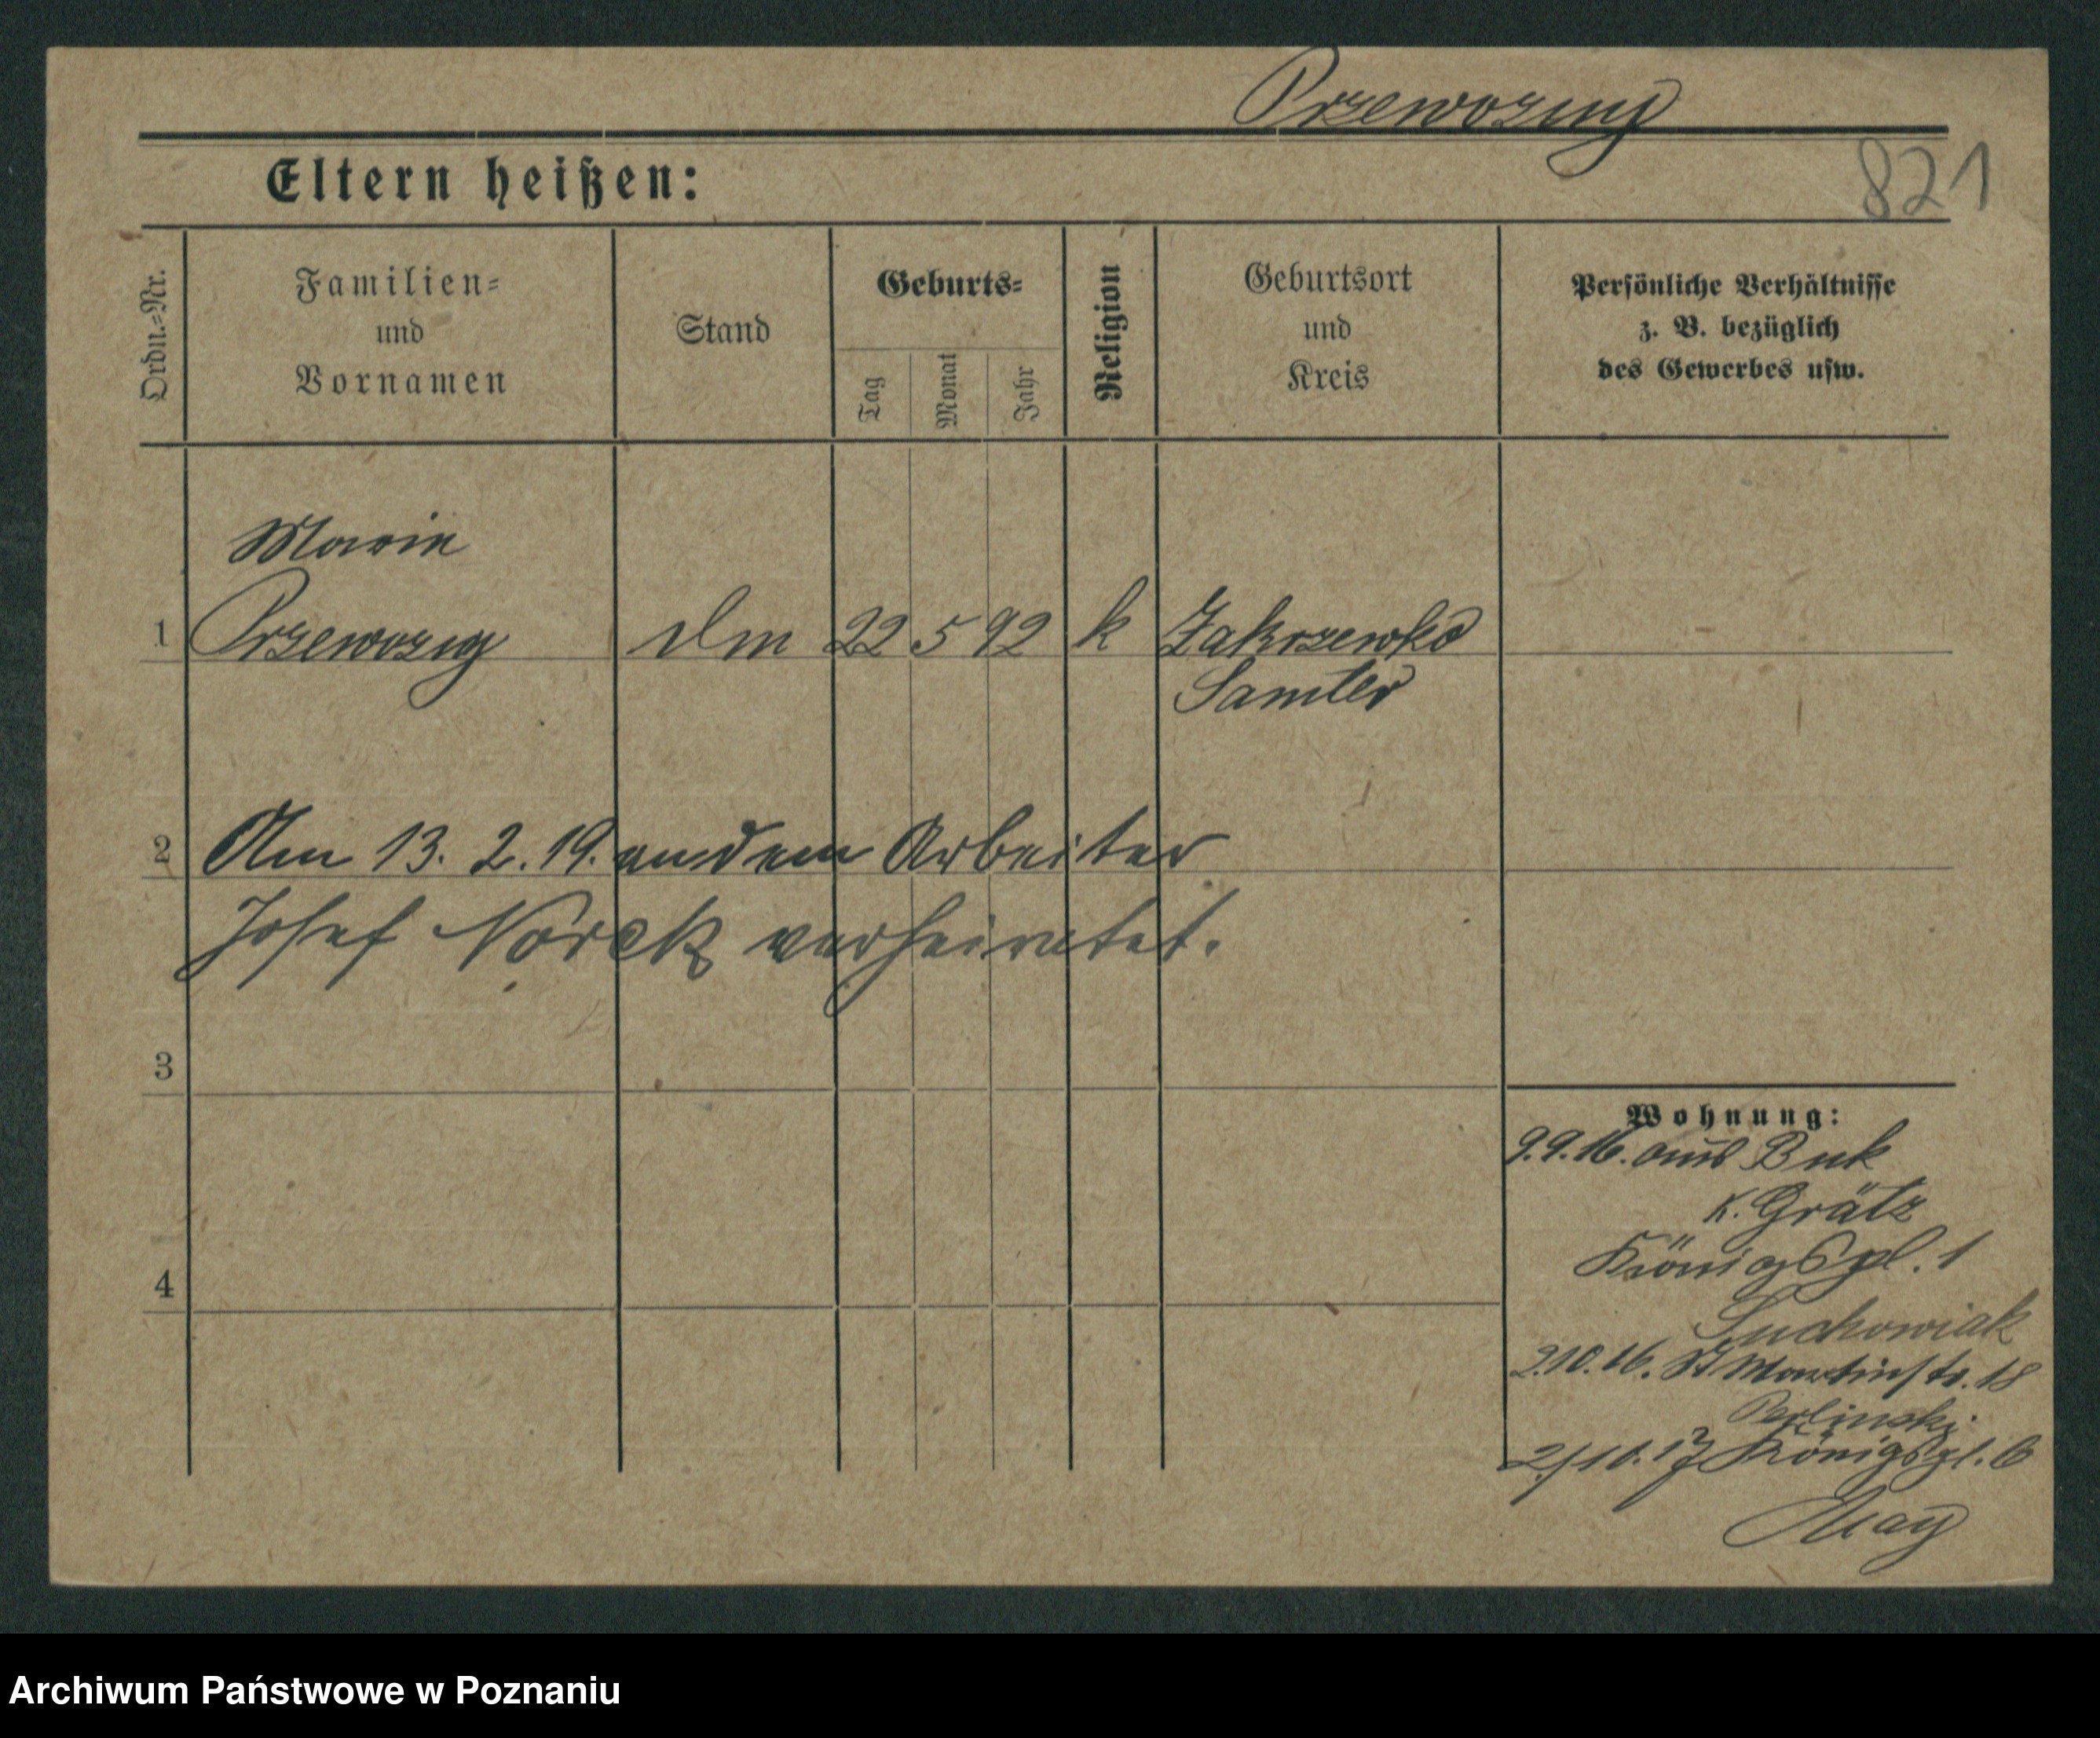 Przewozny
821
Eltern heißen:
Ordn.-Nr.
Familien-
und
Vornamen
Stand
Geburts-
Tag
Monat
Jahr
Religion
Geburtsort
und
Kreis
Persönliche Verhältnisse
z. B. bezüglich
des Gewerbes usw.
Marie
1 Przewozny Dm 22 5 92 k Zakrzewko
Samter
2 Am 13. 2. 19. an dem Arbeiter
Josef Norek verheiratet.
3
4
Wohnung:
9.9.16. aus Buk
K. Grätz
Königspl. 1
Suchowiak
2.10.16. St Martinstr. 18
Perlinski
2/10.17 Königspl. 6
May
Archiwum Państwowe w Poznaniu